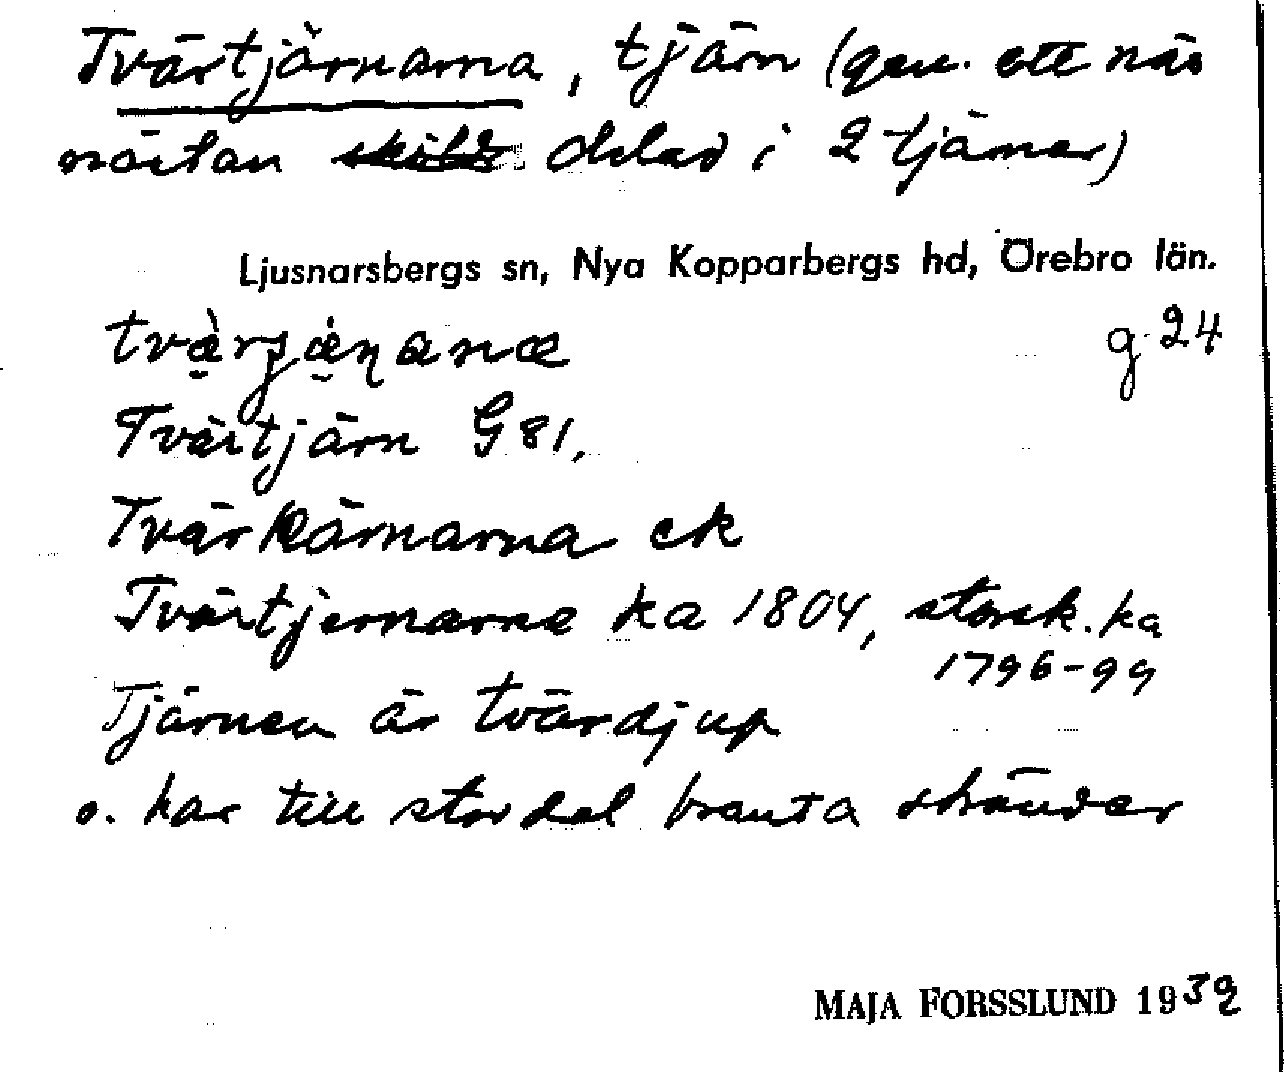 Tvärtjärnarna, tjärn (gen. ett näs
nästan delad i 2 tjärnar)
Ljusnarsbergs sn, Nya Kopparbergs hd, Örebro län.
g 24
Tvärtjärn G 81,
Tvärkärnarna ek
Tvärtjernarne ka 1804, storsk. ka
1796-99
Tjärnen är tvärdjup
o. har till stor del branta stränder
MAJA FORSSLUND 1932